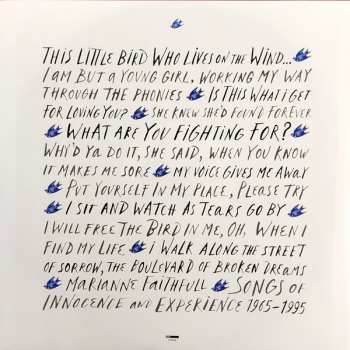 THIS LITTLE BIRD WHO LIVES ON THE WIND...
I AM BUT A YOUNG GIRL, WORKING MY WAY
THROUGH THE PHONIES IS THIS WHAT I GET
FOR LOVING YOU? SHE KNEW SHE'D FOUND FOREVER
WHAT ARE YOU FIGHTING FOR?
WHY'D YA DO IT, SHE SAID, WHEN YOU KNOW
IT MAKES ME SORE MY VOICE GIVES ME AWAY
PUT YOURSELF IN MY PLACE, PLEASE TRY
I SIT AND WATCH AS TEARS GO BY
I WILL FREE THE BIRD IN ME, OH, WHEN I
FIND MY LIFE I WALK ALONG THE STREET
OF SORROW, THE BOULEVARD OF BROKEN DREAMS
MARIANNE FAITHFULL SONGS OF
INNOCENCE AND EXPERIENCE 1965-1995